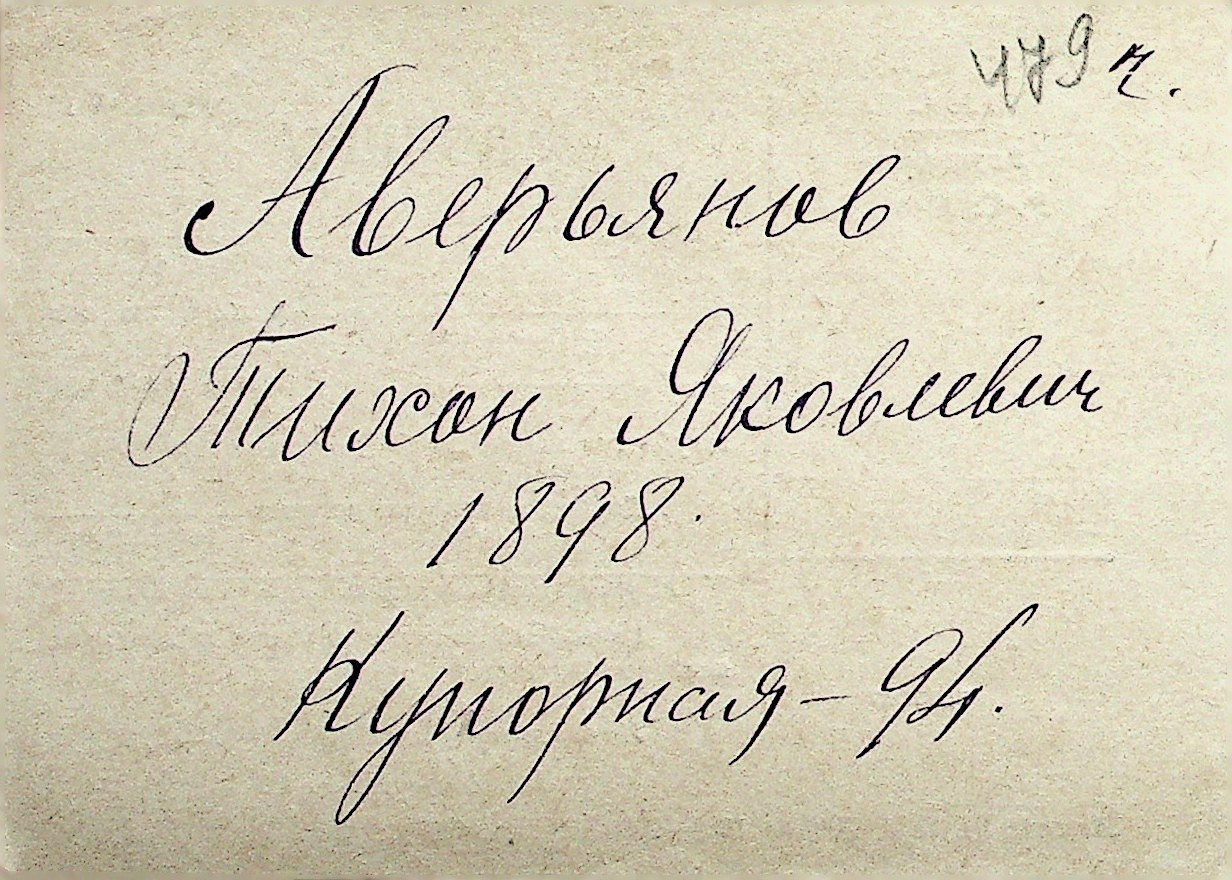 479 ч.
Аверьянов
Тихон Яковлевич
1898.
Купорная – 94.